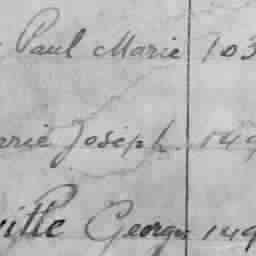 Paul Marie 103
arie Joseph 149
ville Georges 149